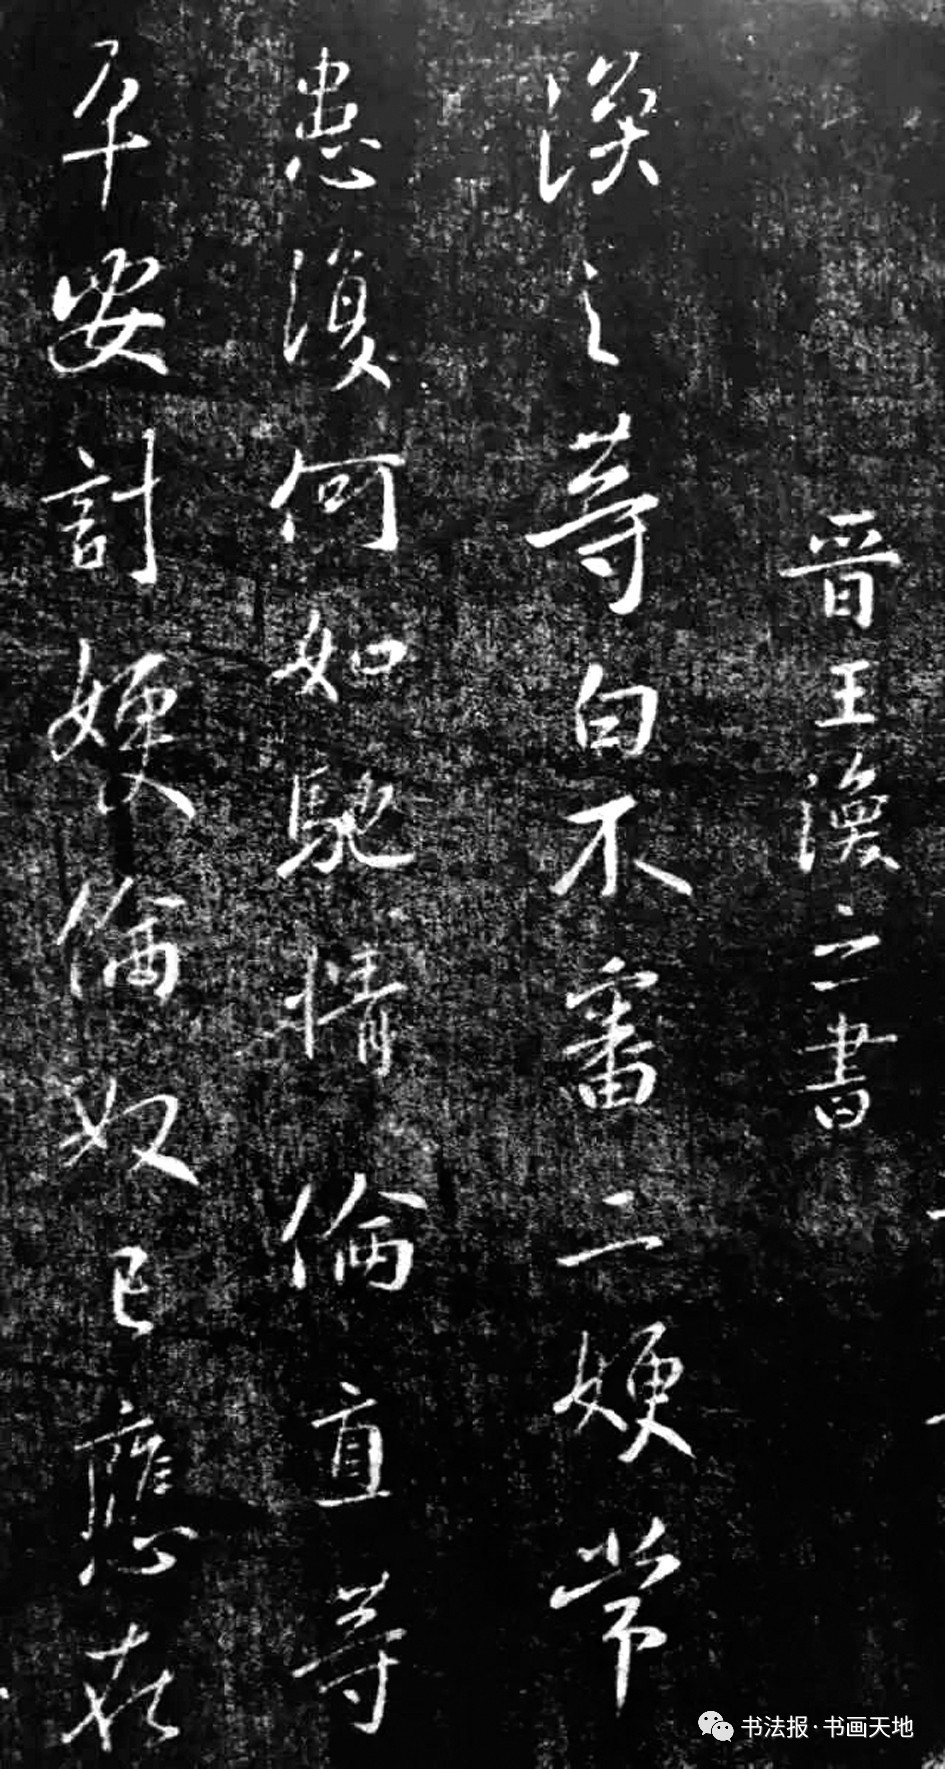 晉王渙之書
渙之等白不審二嫂常
患復何如馳情倫直等
平安計嫂倫奴已應在
书法报·书画天地